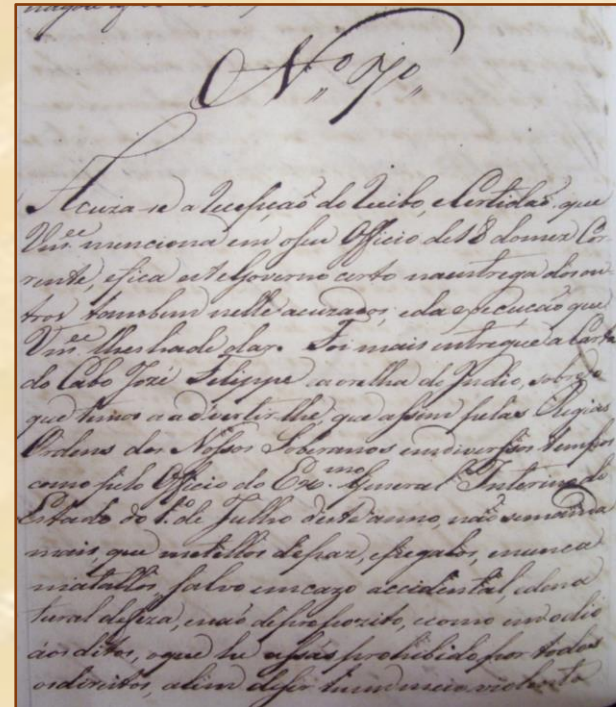 Nº 7º
Acuza-se a Recepçaõ do Recibo, e Certidaõ que
Vmce menciona em o seu Officio de 18 do mez Cor
rente, e fica este Governo certo na entrega dos ou
tros tambem nelle acuzados, e da execuçaõ que
Vmce lhes hade dar. Foi mais entregue a Carta
do Cabo Jozé Filippe, a orelha do Indio, sobre o
que temos a advertirlhe, que assim pelas Regias
Ordens dos Nossos Soberanos em diversos tempos
como pelo Officio do Exmo General Interino do
Estado do 1º de Julho deste anno, naõ se manda
mais, que metellos de paz, e pegalos, e nunca
matallos, salvo em cazo accidental, e de na
tural defeza, e naõ de propozito, e como em odio
aos ditos, o que he assás prohibido por todos
os direitos, alem de ser hum meio violento